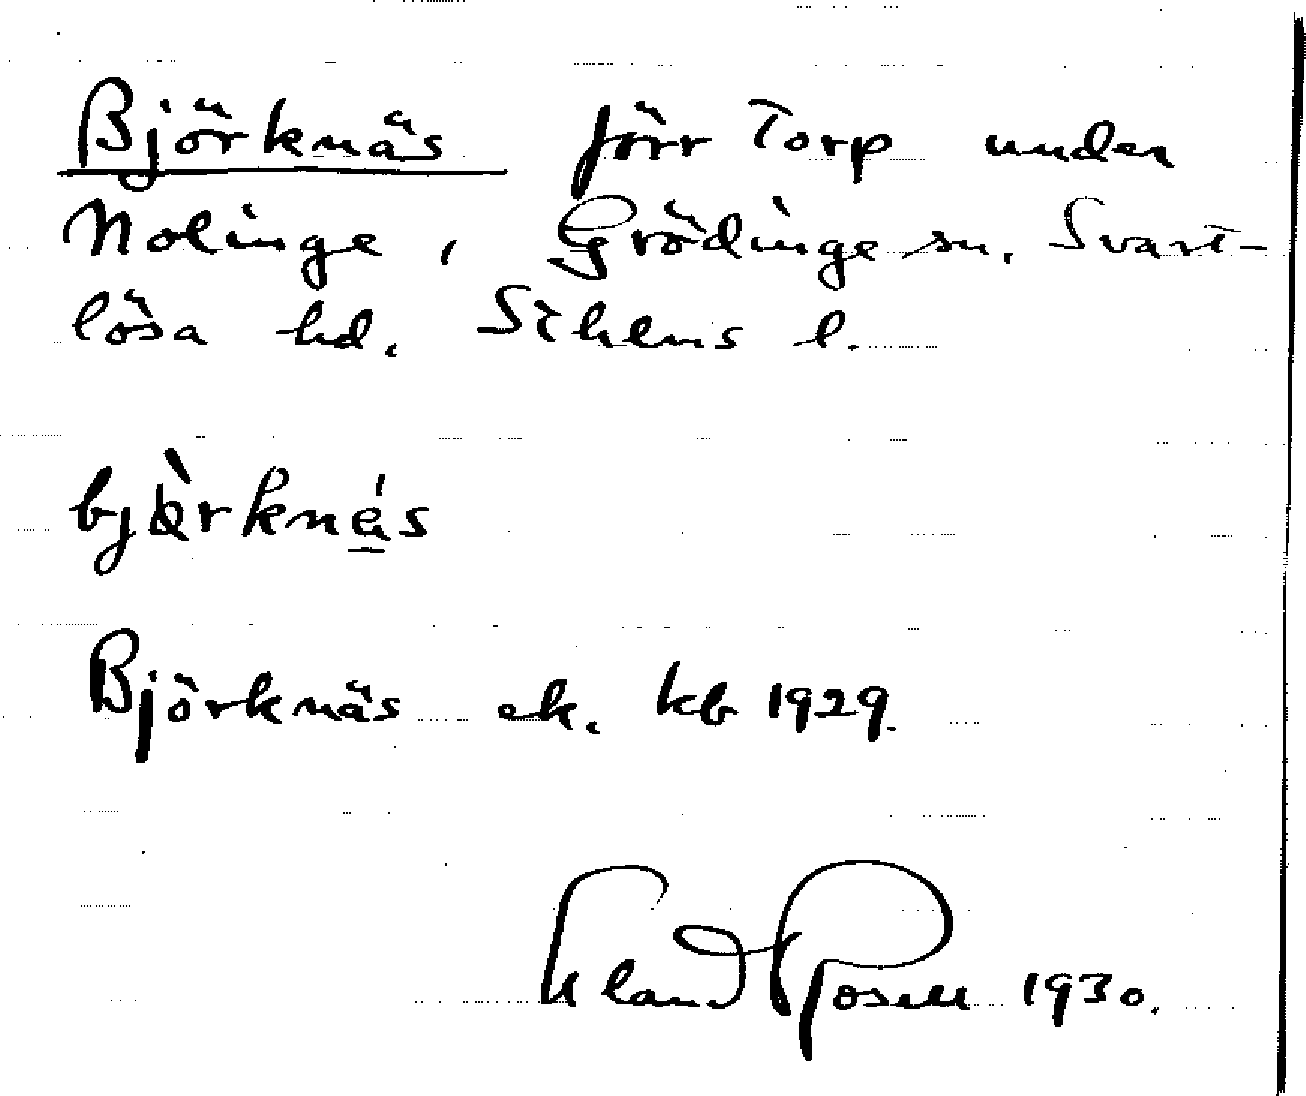 Björknäs förr Torp under
Nolinge, Grödinge sn. Svart-
lösa hd. Sthlms l.
bjòrknés
Björknäs ek. kb 1929.
Erland Rosell 1930.